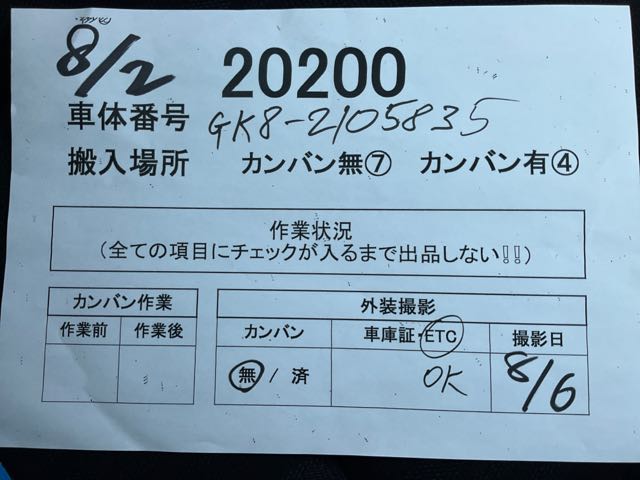 8/2 20200
車体番号 GK8-2105835
搬入場所 カンバン無⑦ カンバン有④
作業状況
(全ての項目にチェックが入るまで出品しない!!)
カンバン作業
作業前 作業後
外装撮影
カンバン 車庫証・ETC 撮影日
無 / 済 OK 8/6